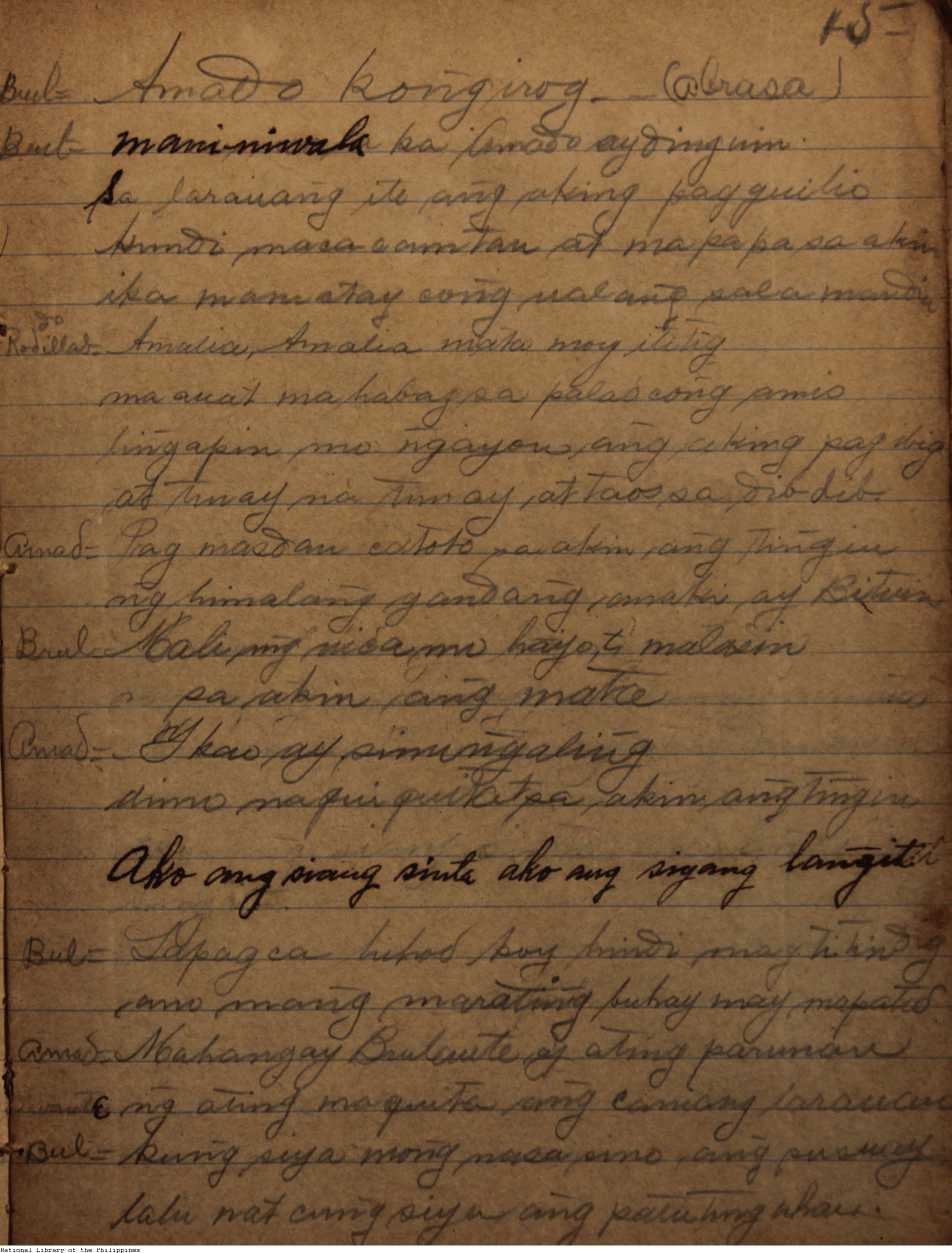 15-
Brul= Amado kong̃irog - (abrasa)
Brul- maniniwala ka Amado ay dinguin
sa larauang ito ang̃ aking pagguilio
kundi macacamtan at mapapasa akin
ika mamatay cong̃ ualang̃ sala mandin
Rodillado= Amalia, Amalia mata moy ititig
maauat mahabag sa palad cong̃ amis
ling̃apin mo ng̃ayon ang̃ aking pag ibig
at tunay na tunay at taos sa dib-dib-
Amad= Pag masdan catoto sa akin ang ting̃in
ng̃ himalang̃ gandang̃ anaki ay Bituin
Brul- Mali ang̃ uica mo hayo,t malasin
sa akin ang̃ mata
Amad=- Ikao ay sinung̃aling̃
dimo naquiquitat sa akin ang̃ ting̃in
Ako ang siang sinta ako ang siyang lang̃it
Bul= Sapagca luhod koy hindi mag titindig
ano mang̃ marating̃ buhay may mapatid
Amad= Mahang̃ay Brulante ay ating parunan
ng̃ ating maquita ang̃ caniang larauan
Bul= kung̃ siya mong̃ nasa sino ang̃ susuay
lalu nat cung̃ siya ang̃ patutung̃uhan.
National Library of the Philippines